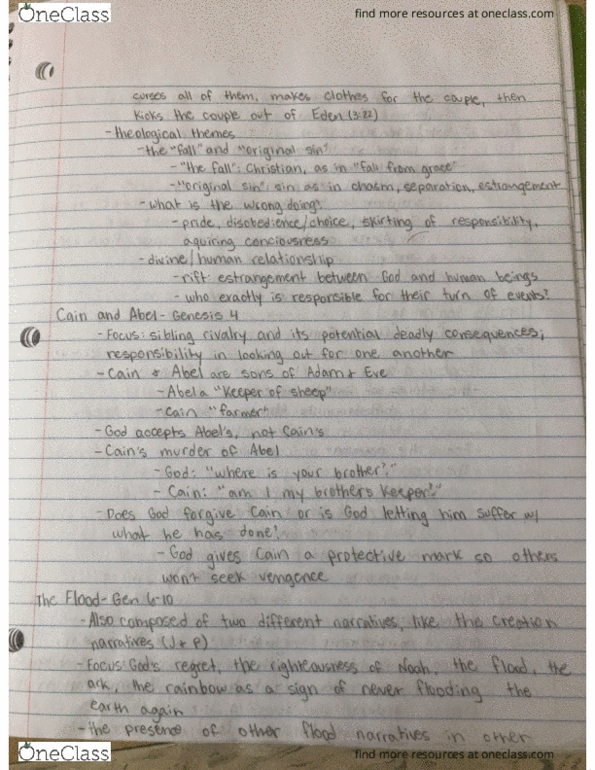 OneClass
find more resources at oneclass.com
curses all of them, makes clothes for the couple, then
kicks the couple out of Eden (3:22)
- theological themes
- the "fall" and "original sin"
- "the fall": Christian, as in "fall from grace"
- "original sin": sin as in chasm, separation, estrangement
- what is the wrong doing?
- pride, disobedience/choice, skirting of responsibility,
aquiring conciousness
- divine/human relationship
- rift: estrangement between God and human beings
- who exactly is responsible for their turn of events?
Cain and Abel - Genesis 4
- Focus: sibling rivalry and its potential deadly consequences;
responsibility in looking out for one another
- Cain & Abel are sons of Adam + Eve
- Abel a "keeper of sheep"
- Cain "farmer"
- God accepts Abel's, not Cain's
- Cain's murder of Abel
- God: "where is your brother?"
- Cain: "am I my brothers keeper?"
- Does God forgive Cain or is God letting him suffer w/
what he has done?
- God gives Cain a protective mark so others
won't seek vengence
The Flood - Gen 6-10
- Also composed of two different narratives, like the creation
narratives (J + P)
- Focus: God's regret, the righteousness of Noah, the flood, the
ark, the rainbow as a sign of never flooding the
earth again
- the presence of other flood narratives in other
OneClass
find more resources at oneclass.com